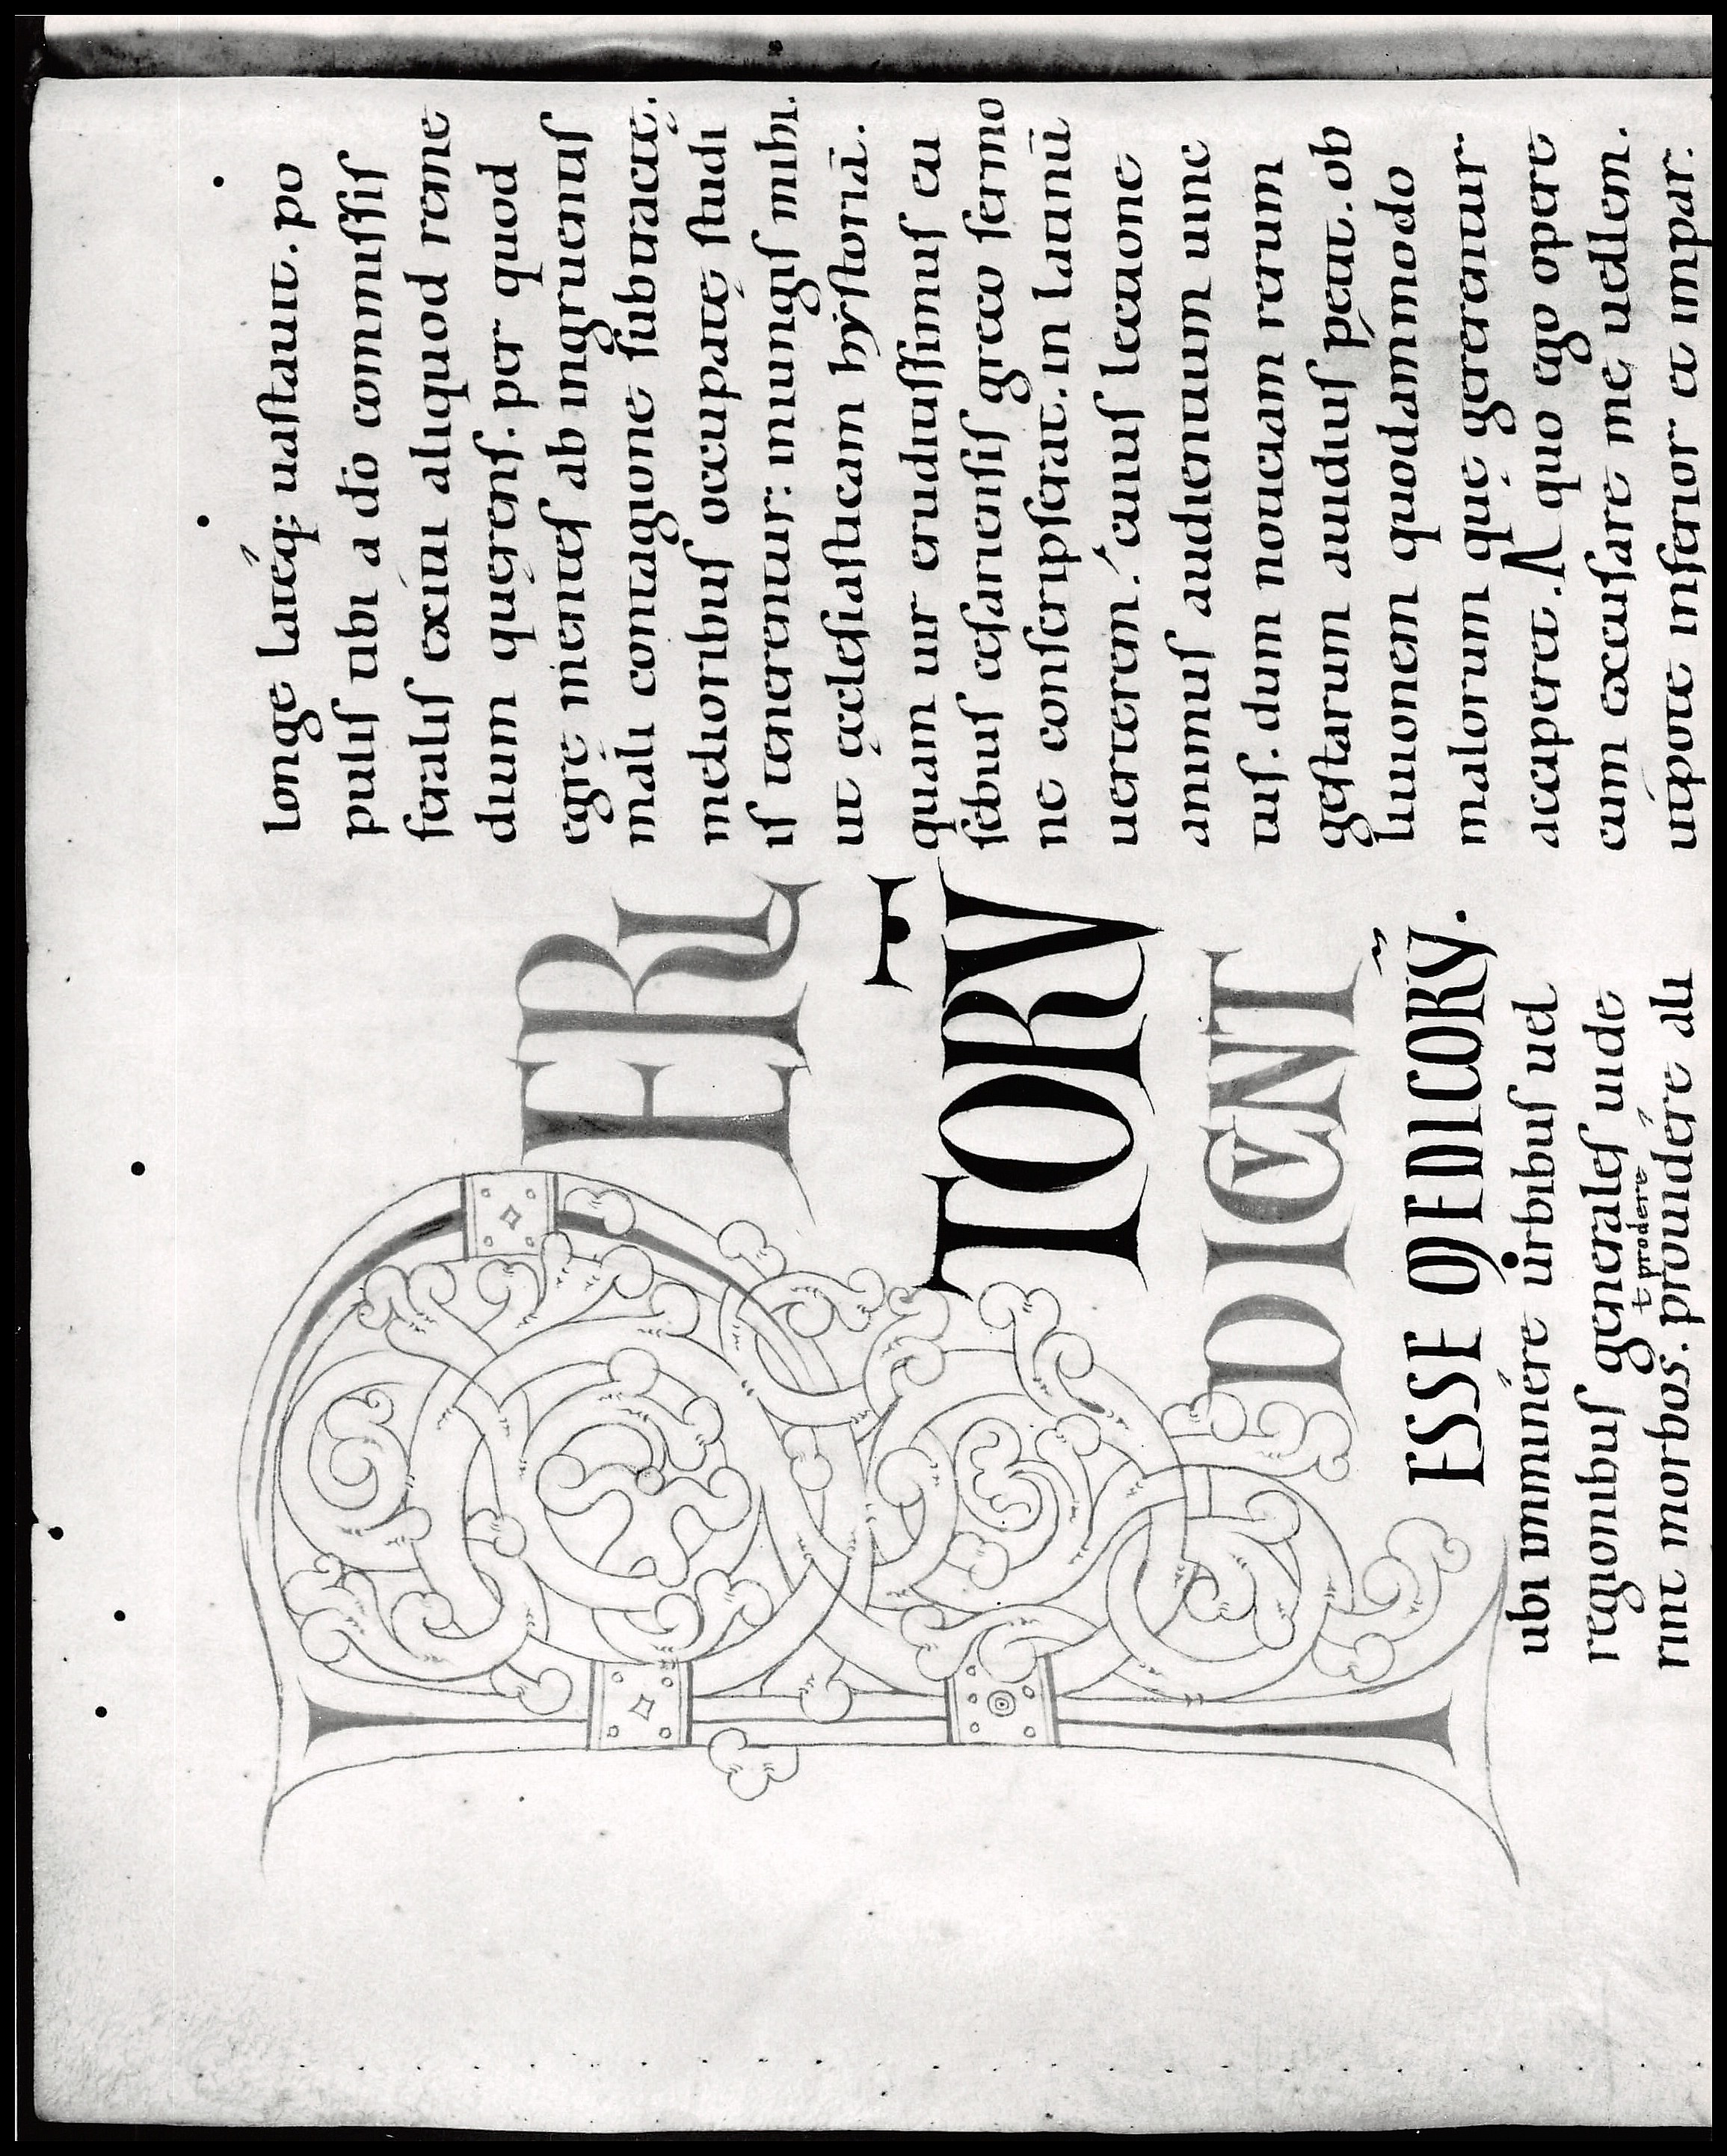 PERI
TORV̄
DICVNT
ESSE MEDICORV̄.
ubi imminére úrbibuſ uel
regionibuſ generaleſ uide
ƚ prodere
rint morbos. prouidére ali
longe latéq; uaſtauit. po
puliſ tibi a dō commiſſiſ
feraliſ exitii aliquod reme
dium quęrenſ. per quod
ęgrę menteſ ab ingruentiſ
mali contagione ſubtractę.
medioribuſ occupatę ſtudi
iſ tenerentur: iniungiſ mihi.
ut ęccleſiaſticam hyſtoriā.
quam uir eruditiſſimuſ eu
ſebiuſ ceſarienſiſ greco ſermo
ne conſcripſerat. in latinū
uerterem. cuiuſ lectione
animuſ audientium uinc
tuſ. dum noticiam rerum
geſtarum auidiuſ petit. ob
liuionem quodammodo
malorum quę gererentur
acciperet. A quo ego opere
cum excuſare me uellem.
utpote inferior et impar.